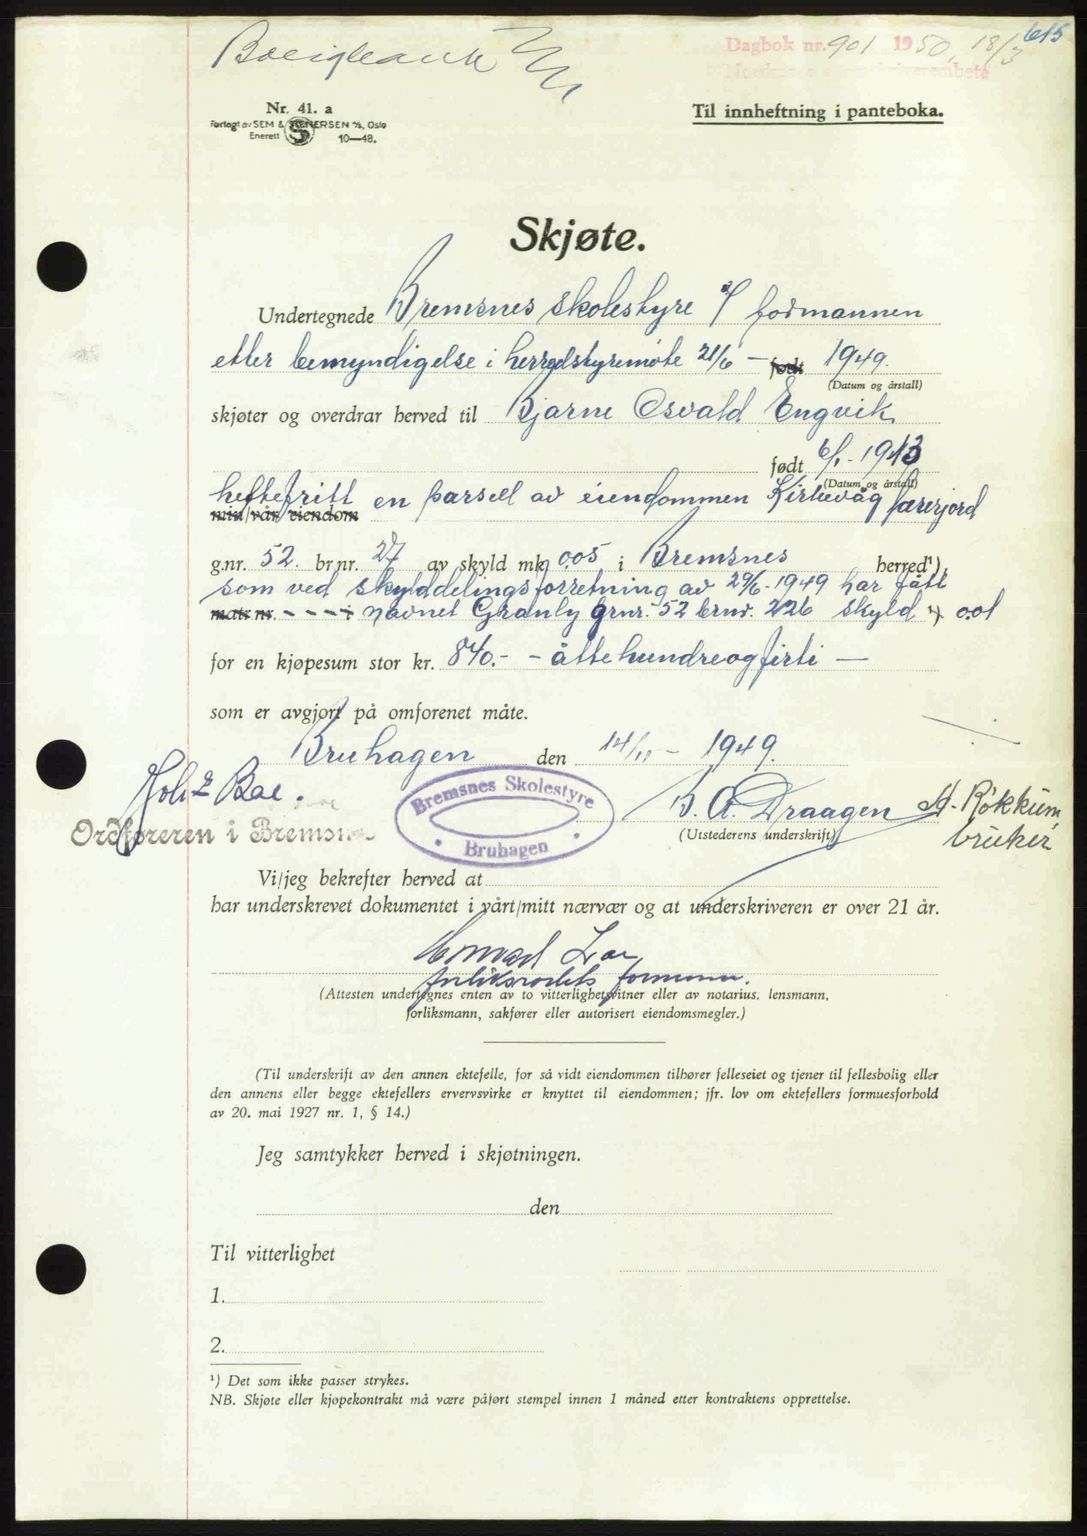 615
Dagbok nr. 901 1950, 18/3
Nr. 41. a
Forlagt av SEM & STENERSEN A/S, Oslo
Enerett 10—48.
Til innheftning i panteboka.
Skjøte.
Undertegnede Bremsnes skolestyre v/ formannen
etter bemyndigelse i herredstyremøte 21/6 - født 1949.
(Datum og årstall)
skjøter og overdrar herved til Bjarne Osvald Engvik
født 6/1 - 1913
(Datum og årstall)
heftefritt en parsell av eiendommen Kirkevåg prestejord
min/vår eiendom
g.nr. 52. br.nr. 27 av skyld mk 0.05 i Bremsnes herred¹),
som ved skylddelingsforretning av 29/6 - 1949 har fått
matr.nr. - - - - i navnet Granly grnr. 52 brnr. 226 skyld ¹) 0.01
for en kjøpesum stor kr. 840.- - åttehundreogførti —
som er avgjort på omforenet måte.
Bruhagen den 14/11 - 1949.
Joh. Boe.
Ordføreren i Bremsnes
Bremsnes Skolestyre
Bruhagen
B. A. Draagen
(Utstederens underskrift)
H. Røkkum
bruker
Vi/jeg bekrefter herved at
har underskrevet dokumentet i vårt/mitt nærvær og at underskriveren er over 21 år.
forliksrådets formann.
(Attesten undertegnes enten av to vitterlighetsvitner eller av notarius, lensmann,
forliksmann, sakfører eller autorisert eiendomsmegler.)
(Til underskrift av den annen ektefelle, for så vidt eiendommen tilhører felleseiet og tjener til fellesbolig eller
den annens eller begge ektefellers ervervsvirke er knyttet til eiendommen; jfr. lov om ektefellers formuesforhold
av 20. mai 1927 nr. 1, § 14.)
Jeg samtykker herved i skjøtningen.
den
Til vitterlighet
1.
2.
¹) Det som ikke passer strykes.
NB. Skjøte eller kjøpekontrakt må være påført stempel innen 1 måned etter kontraktens opprettelse.